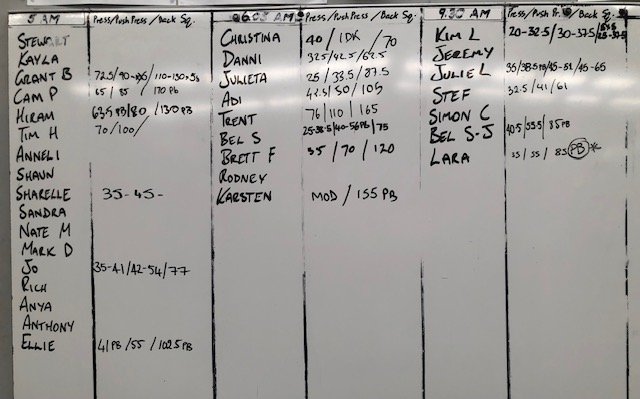 5 AM Press/Push Press/Back Sq.
STEWART
KAYLA
GRANT B 72.5/90-
CAM P 65/85/170 PB
HIRAM 63.5 PB/80/130 PB
TIM H 70/100/
ANNELI
SHAUN
SHARELLE 35-45-
SANDRA
NATE M
MARK D
JO 35-41/42-54/77
RICH
ANYA
ANTHONY
ELLIE 41 PB/55/102.5 PB
AM Press/Push Press/Back Sq.
CHRISTINA 40/IDK/70
DANNI 32.5/42.5/62.5
JULIETA 25/33.5/
ADI 42.5/50/105
TRENT 76/110/165
BEL S 25-38.5/40-56 PB/75
BRETT F 35/70/120
RODNEY
KARSTEN MOD/155 PB
9.30 AM Press/Push Pr./Back Sq.
KIM L 20-32.5/30-37.5/
JEREMY
JULIE L 35/38.5 PB/45-51/45-65
STEF 32.5/41/61
SIMON C
BEL S-J 40.5/53.5/85 PB
LARA 55/85 PB